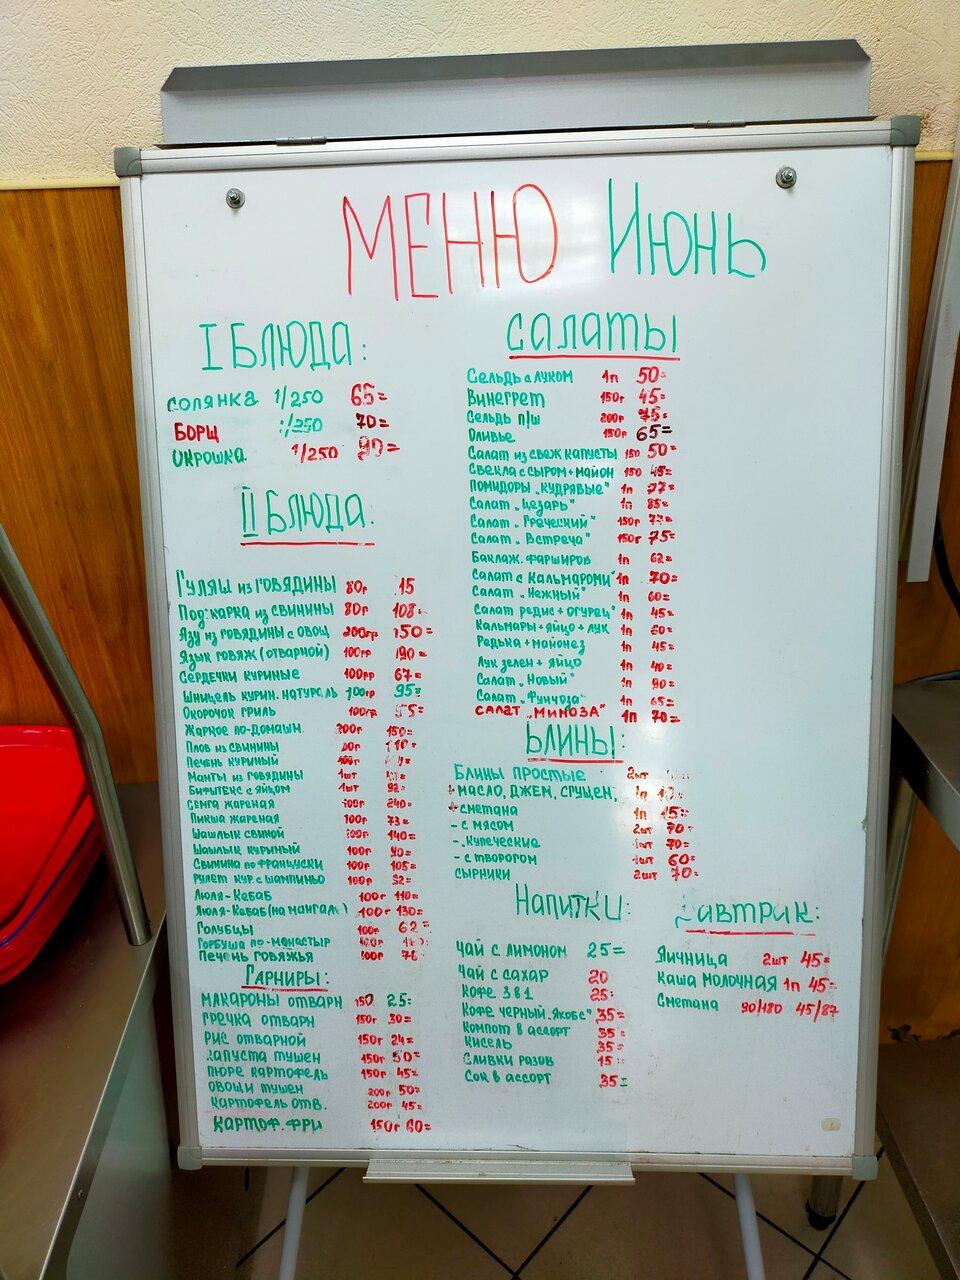 МЕНЮ Июнь
I БЛЮДА:
СОЛЯНКА 1/250 65=
БОРЩ 1/250 70=
ОКРОШКА 1/250 90=
II БЛЮДА:
Гуляш из говядины 80г
Поджарка из свинины 80г 108=
Азу из говядины с овощ 200гр 150=
Язык говяж (отварной) 100гр 190=
Сердечки куриные 100гр 67=
Шницель курин. натурель 100гр 95=
Окорочок гриль 100гр
Жаркое по-домашн 300г 150=
Плов из свинины
Печень куриный
Манты из говядины 1шт
Бифштекс с яйцом 1шт 92=
Семга жареная 100г 240=
Пикша жареная 100г 73=
Шашлык свиной 100г 140=
Шашлык куриный 100г 90=
Свинина по Французски 100г 105=
Рулет кур с шампиньо 100г 92=
Люля-Кебаб 100г 110=
Люля-Кебаб (на мангале) 100г 130=
Голубцы 100г 62=
Горбуша по-монастыр 100г
Печень говяжья 100г
ГАРНИРЫ:
МАКАРОНЫ ОТВАРН 150 25=
ГРЕЧКА ОТВАРН 150г 30=
РИС ОТВАРНОЙ 150г 24=
КАПУСТА ТУШЕН 150г 50=
ПЮРЕ КАРТОФЕЛЬ 150г 45=
ОВОЩИ ТУШЕН 200г 50=
КАРТОФЕЛЬ ОТВ. 200г 45=
КАРТОФ. ФРИ 150г 60=
САЛАТЫ
Сельдь с луком 1п 50=
Винегрет 150г 45=
Сельдь п/ш 200г 75=
Оливье 150г 65=
Салат из свеж капусты 150 50=
Свекла с сыром+майон 150 45=
Помидоры „Кудрявые" 1п 77=
Салат „Цезарь" 1п 85=
Салат „Греческий" 150г 77=
Салат „Встреча" 150г 75=
Баклаж. фарширов 1п 62=
Салат с Кальмароми 1п 70=
Салат „Нежный" 1п 60=
Салат редис+огурец 1п 45=
Кальмары+яйцо+лук 1п 60=
Редька+майонез 1п 45=
Лук зелен+яйцо 1п 40=
Салат „Новый" 1п 90=
Салат „Фунчоза" 1п 65=
САЛАТ „МИМОЗА" 1п 70=
БЛИНЫ:
Блины простые 2шт
+масло, джем, сгущен, 1п
+сметана 1п 15=
- с мясом 2шт 70=
- „Купеческие 1шт 70=
- с творогом 1шт 60=
сырники 2шт 70=
Напитки:
Чай с лимоном 25=
Чай с сахар 20
Кофе 3в1 25=
Кофе черный „Якобс" 35=
Компот в ассорт 35=
Кисель 35=
Сливки разов 15=
Сок в ассорт 35=
Завтрак:
Яичница 2шт 45=
Каша молочная 1п 45=
Сметана 90/180 45/87